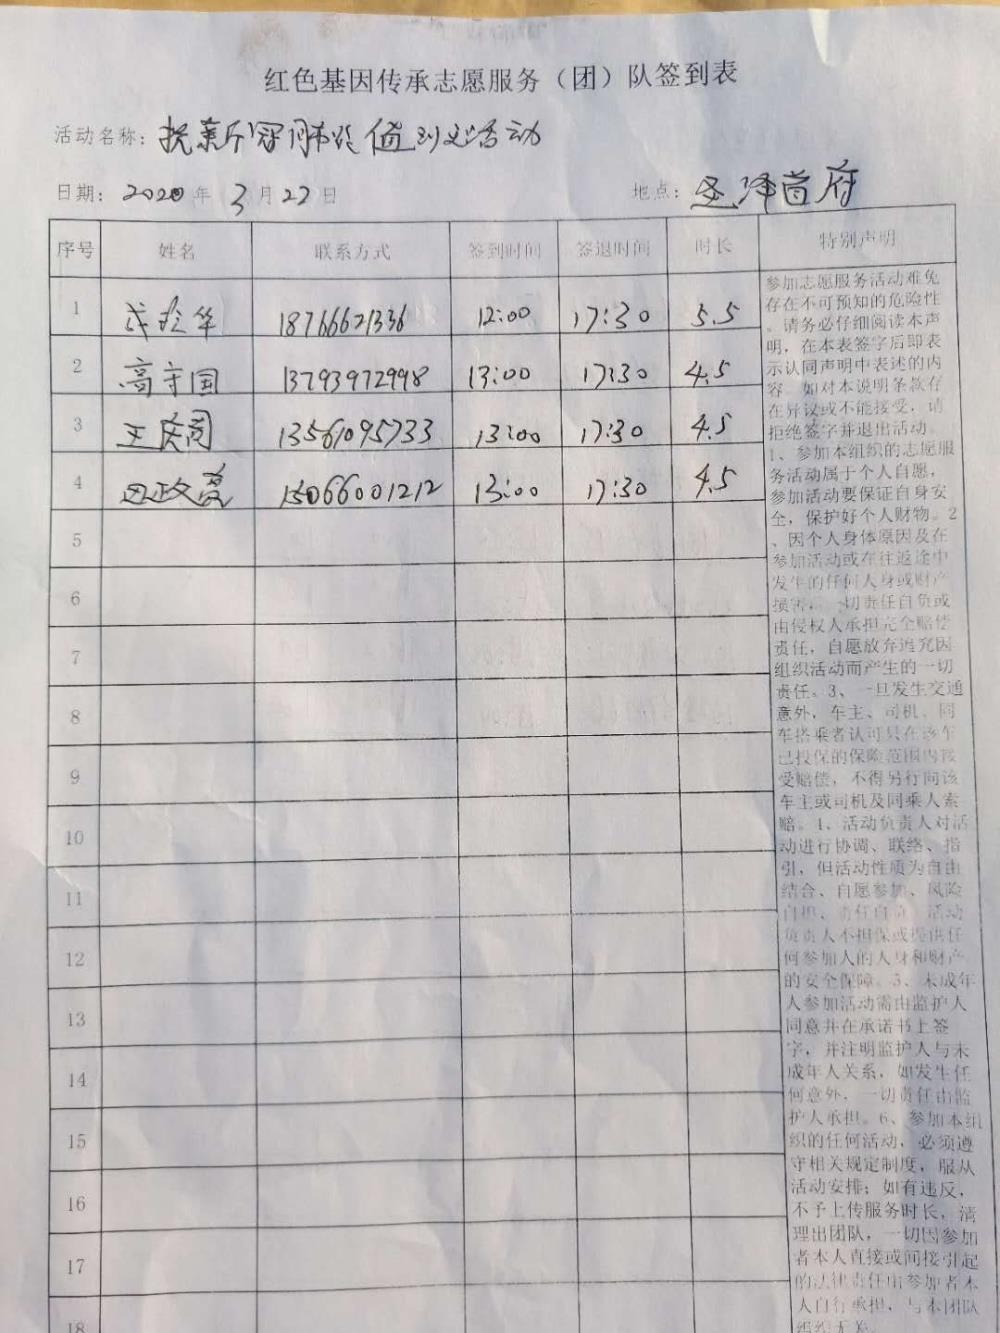 红色基因传承志愿服务（团）队签到表
活动名称：抗新冠肺炎值活动
日期：2020年3月22日 地点：圣泽首府
序号 姓名 联系方式 签到时间 签退时间 时长 特别声明
1 华 18766621336 12:00 17:30 5.5
2 高守国 13793972998 13:00 17:30 4.5
3 王庆阁 13561095733 13:00 17:30 4.5
4 田政亮 15066001212 13:00 17:30 4.5
5
6
7
8
9
10
11
12
13
14
15
16
17
18
参加志愿服务活动难免
存在不可预知的危险性
。请务必仔细阅读本声
明，在本表签字后即表
示认同声明中表述的内
容。如对本说明条款存
在异议或不能接受，请
拒绝签字并退出活动。
1、参加本组织的志愿服
务活动属于个人自愿，
参加活动要保证自身安
全，保护好个人财物。2
、因个人身体原因及在
参加活动或在往返途中
发生的任何人身或财产
损害，一切责任自负或
由侵权人承担完全赔偿
责任，自愿放弃追究因
组织活动而产生的一切
责任。3、一旦发生交通
意外，车主、司机、同
车搭乘者认可只在该车
已投保的保险范围内接
受赔偿，不得另行向该
车主或司机及同乘人索
赔。4、活动负责人对活
动进行协调、联络、指
引，但活动性质为自由
结合、自愿参加、风险
自担、责任自负。活动
负责人不担保或提供任
何参加人的人身和财产
的安全保障。5、未成年
人参加活动需由监护人
同意并在承诺书上签
字，并注明监护人与未
成年人关系，如发生任
何意外，一切责任由监
护人承担。6、参加本组
织的任何活动，必须遵
守相关规定制度，服从
活动安排；如有违反，
不予上传服务时长，清
理出团队，一切因参加
者本人直接或间接引起
的法律责任由参加者本
人自行承担，与本团队
组织无关。